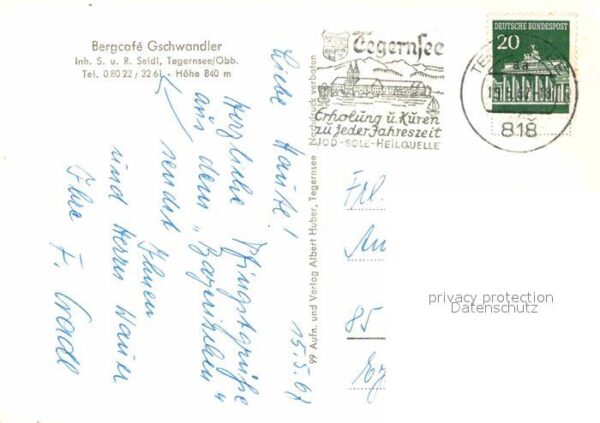 Bergcafé Gschwandler
Inh. S. u. R. Seidl, Tegernsee/Obb.
Tel. 0 80 22 / 32 61 - Höhe 840 m
Tegernsee
Erholung u. Kuren
zu jeder Jahreszeit
JOD-SOLE-HEILQUELLE
DEUTSCHE BUNDESPOST
20
818
15.5.67
Liebe
Herzliche Pfingstgrüße
aus dem "
sendet Ihnen
und Herrn
Ihre F.
99 Aufn. und Verlag Albert Huber, Tegernsee Nachdruck verboten
Frl.
85
privacy protection
Datenschutz